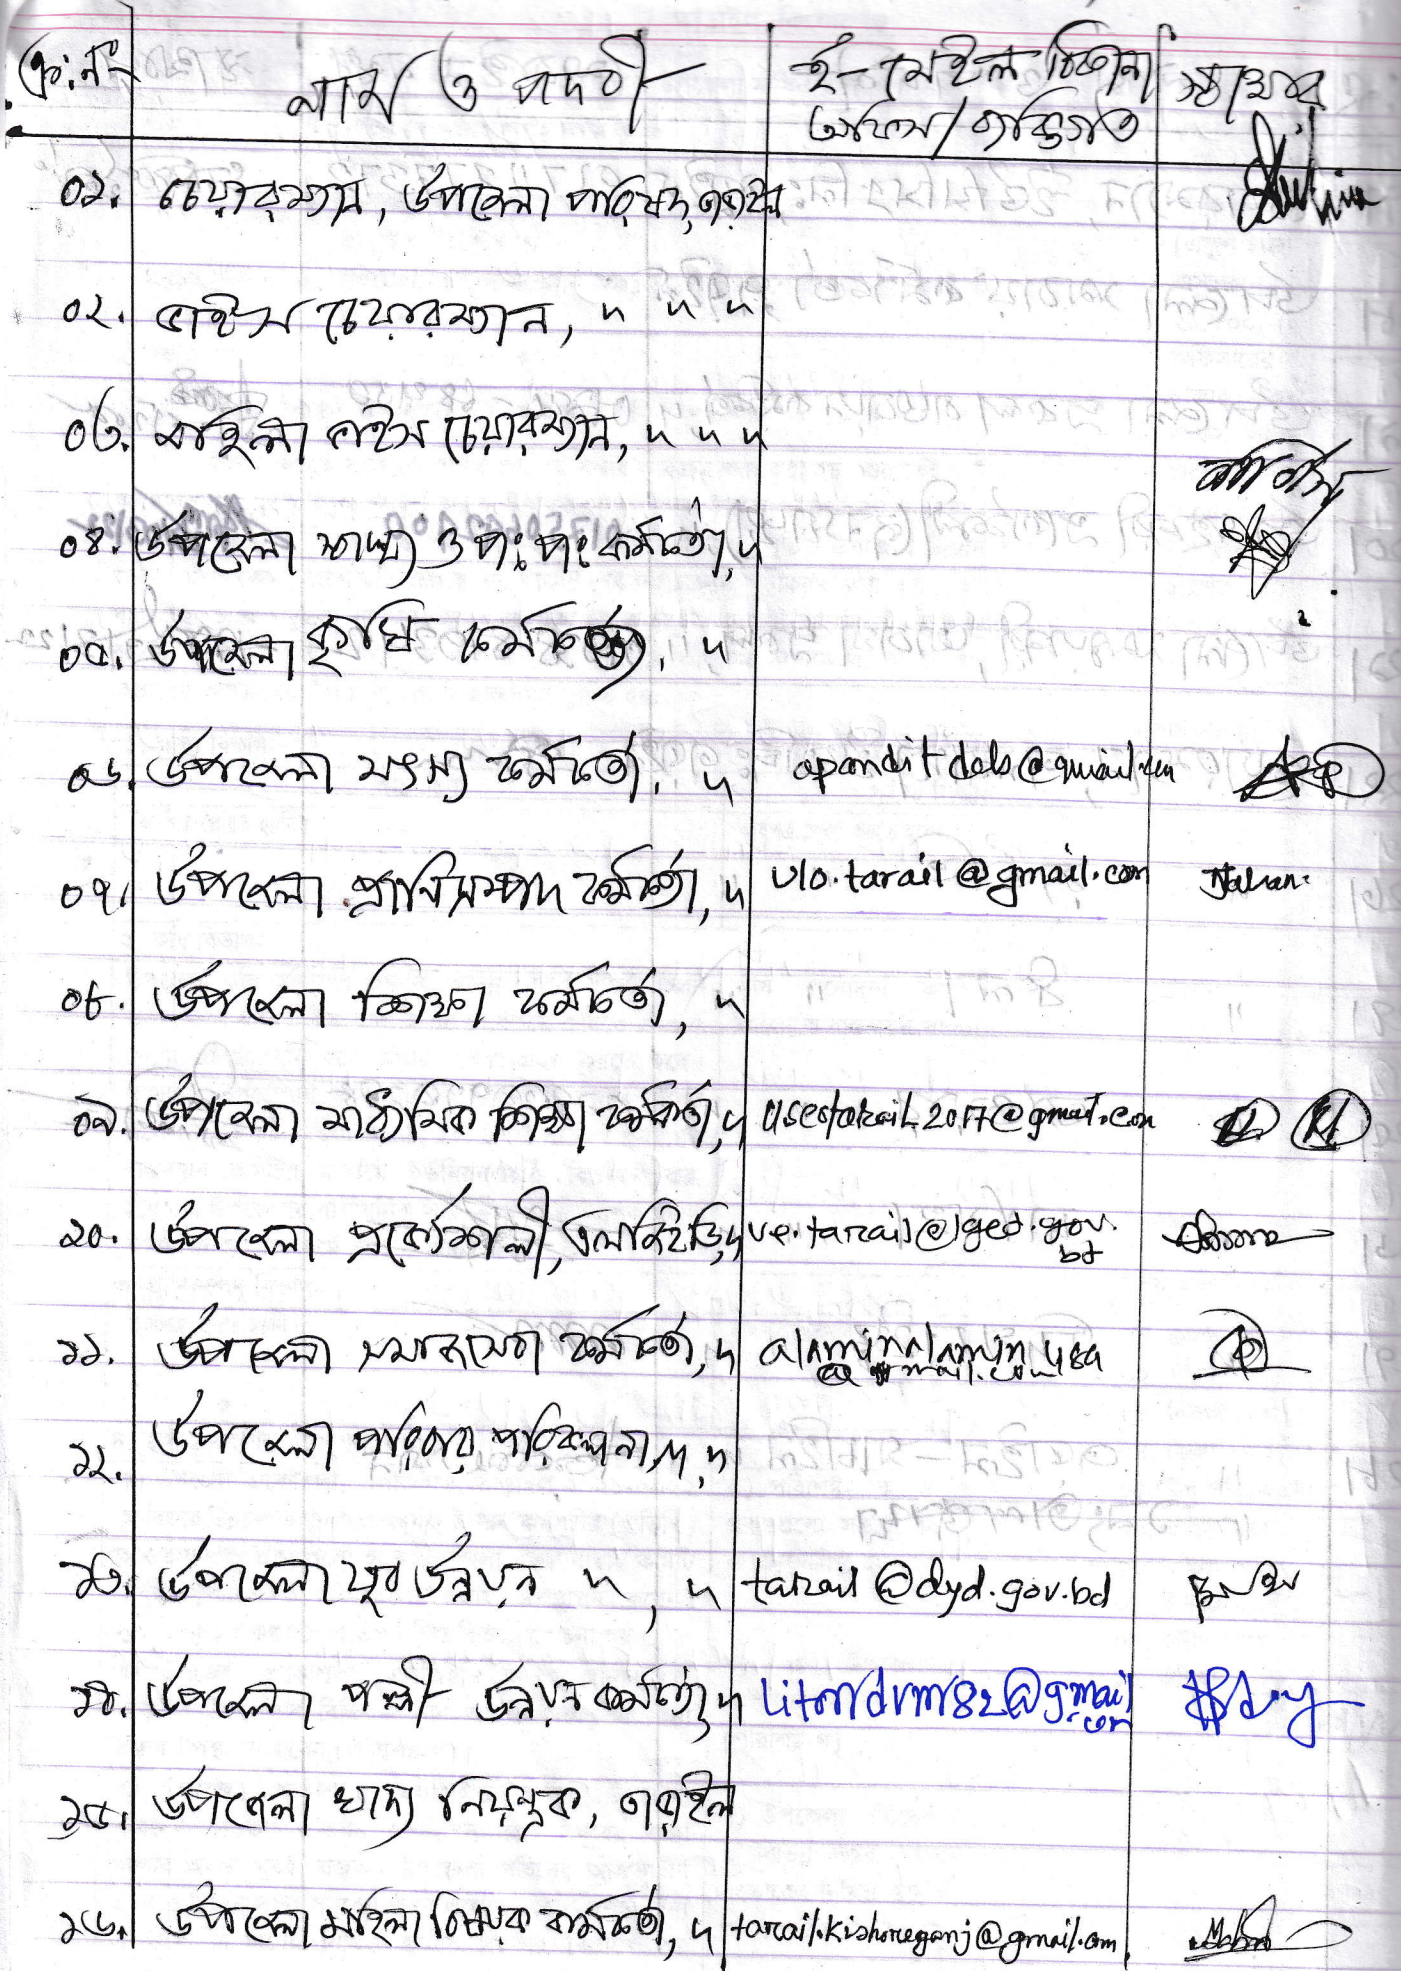 ক্রঃ নং নাম ও পদবী ই-মেইল ঠিকানা স্বাক্ষর
অফিস/ব্যক্তিগত
০১. চেয়ারম্যান, উপজেলা পরিষদ, তাড়াইল
০২. ভাইস চেয়ারম্যান, " " "
০৩. মহিলা ভাইস চেয়ারম্যান, " " "
০৪. উপজেলা স্বাস্থ্য ও পঃ পঃ কর্মকর্তা, "
০৫. উপজেলা কৃষি কর্মকর্তা, "
০৬. উপজেলা মৎস্য কর্মকর্তা, " apanditdeb@gmail.com
০৭. উপজেলা প্রাণিসম্পদ কর্মকর্তা, " ulo.tarail@gmail.com Jahan
০৮. উপজেলা শিক্ষা কর্মকর্তা, "
০৯. উপজেলা মাধ্যমিক শিক্ষা কর্মকর্তা, " useotarail2017@gmail.com
১০. উপজেলা প্রকৌশলী, এলজিইডি, " ue.tarail@lged.gov.
bd
১১. উপজেলা সমাজসেবা কর্মকর্তা, " alaminalamin489
@gmail.com
১২. উপজেলা পরিবার পরিকল্পনা, " "
১৩. উপজেলা যুব উন্নয়ন ", " tarail@dyd.gov.bd
১৪. উপজেলা পল্লী উন্নয়ন কর্মকর্তা, " litondvm82@gmail
.com
১৫. উপজেলা খাদ্য নিয়ন্ত্রক, তাড়াইল
১৬. উপজেলা মহিলা বিষয়ক কর্মকর্তা, " tarail.kishoreganj@gmail.com